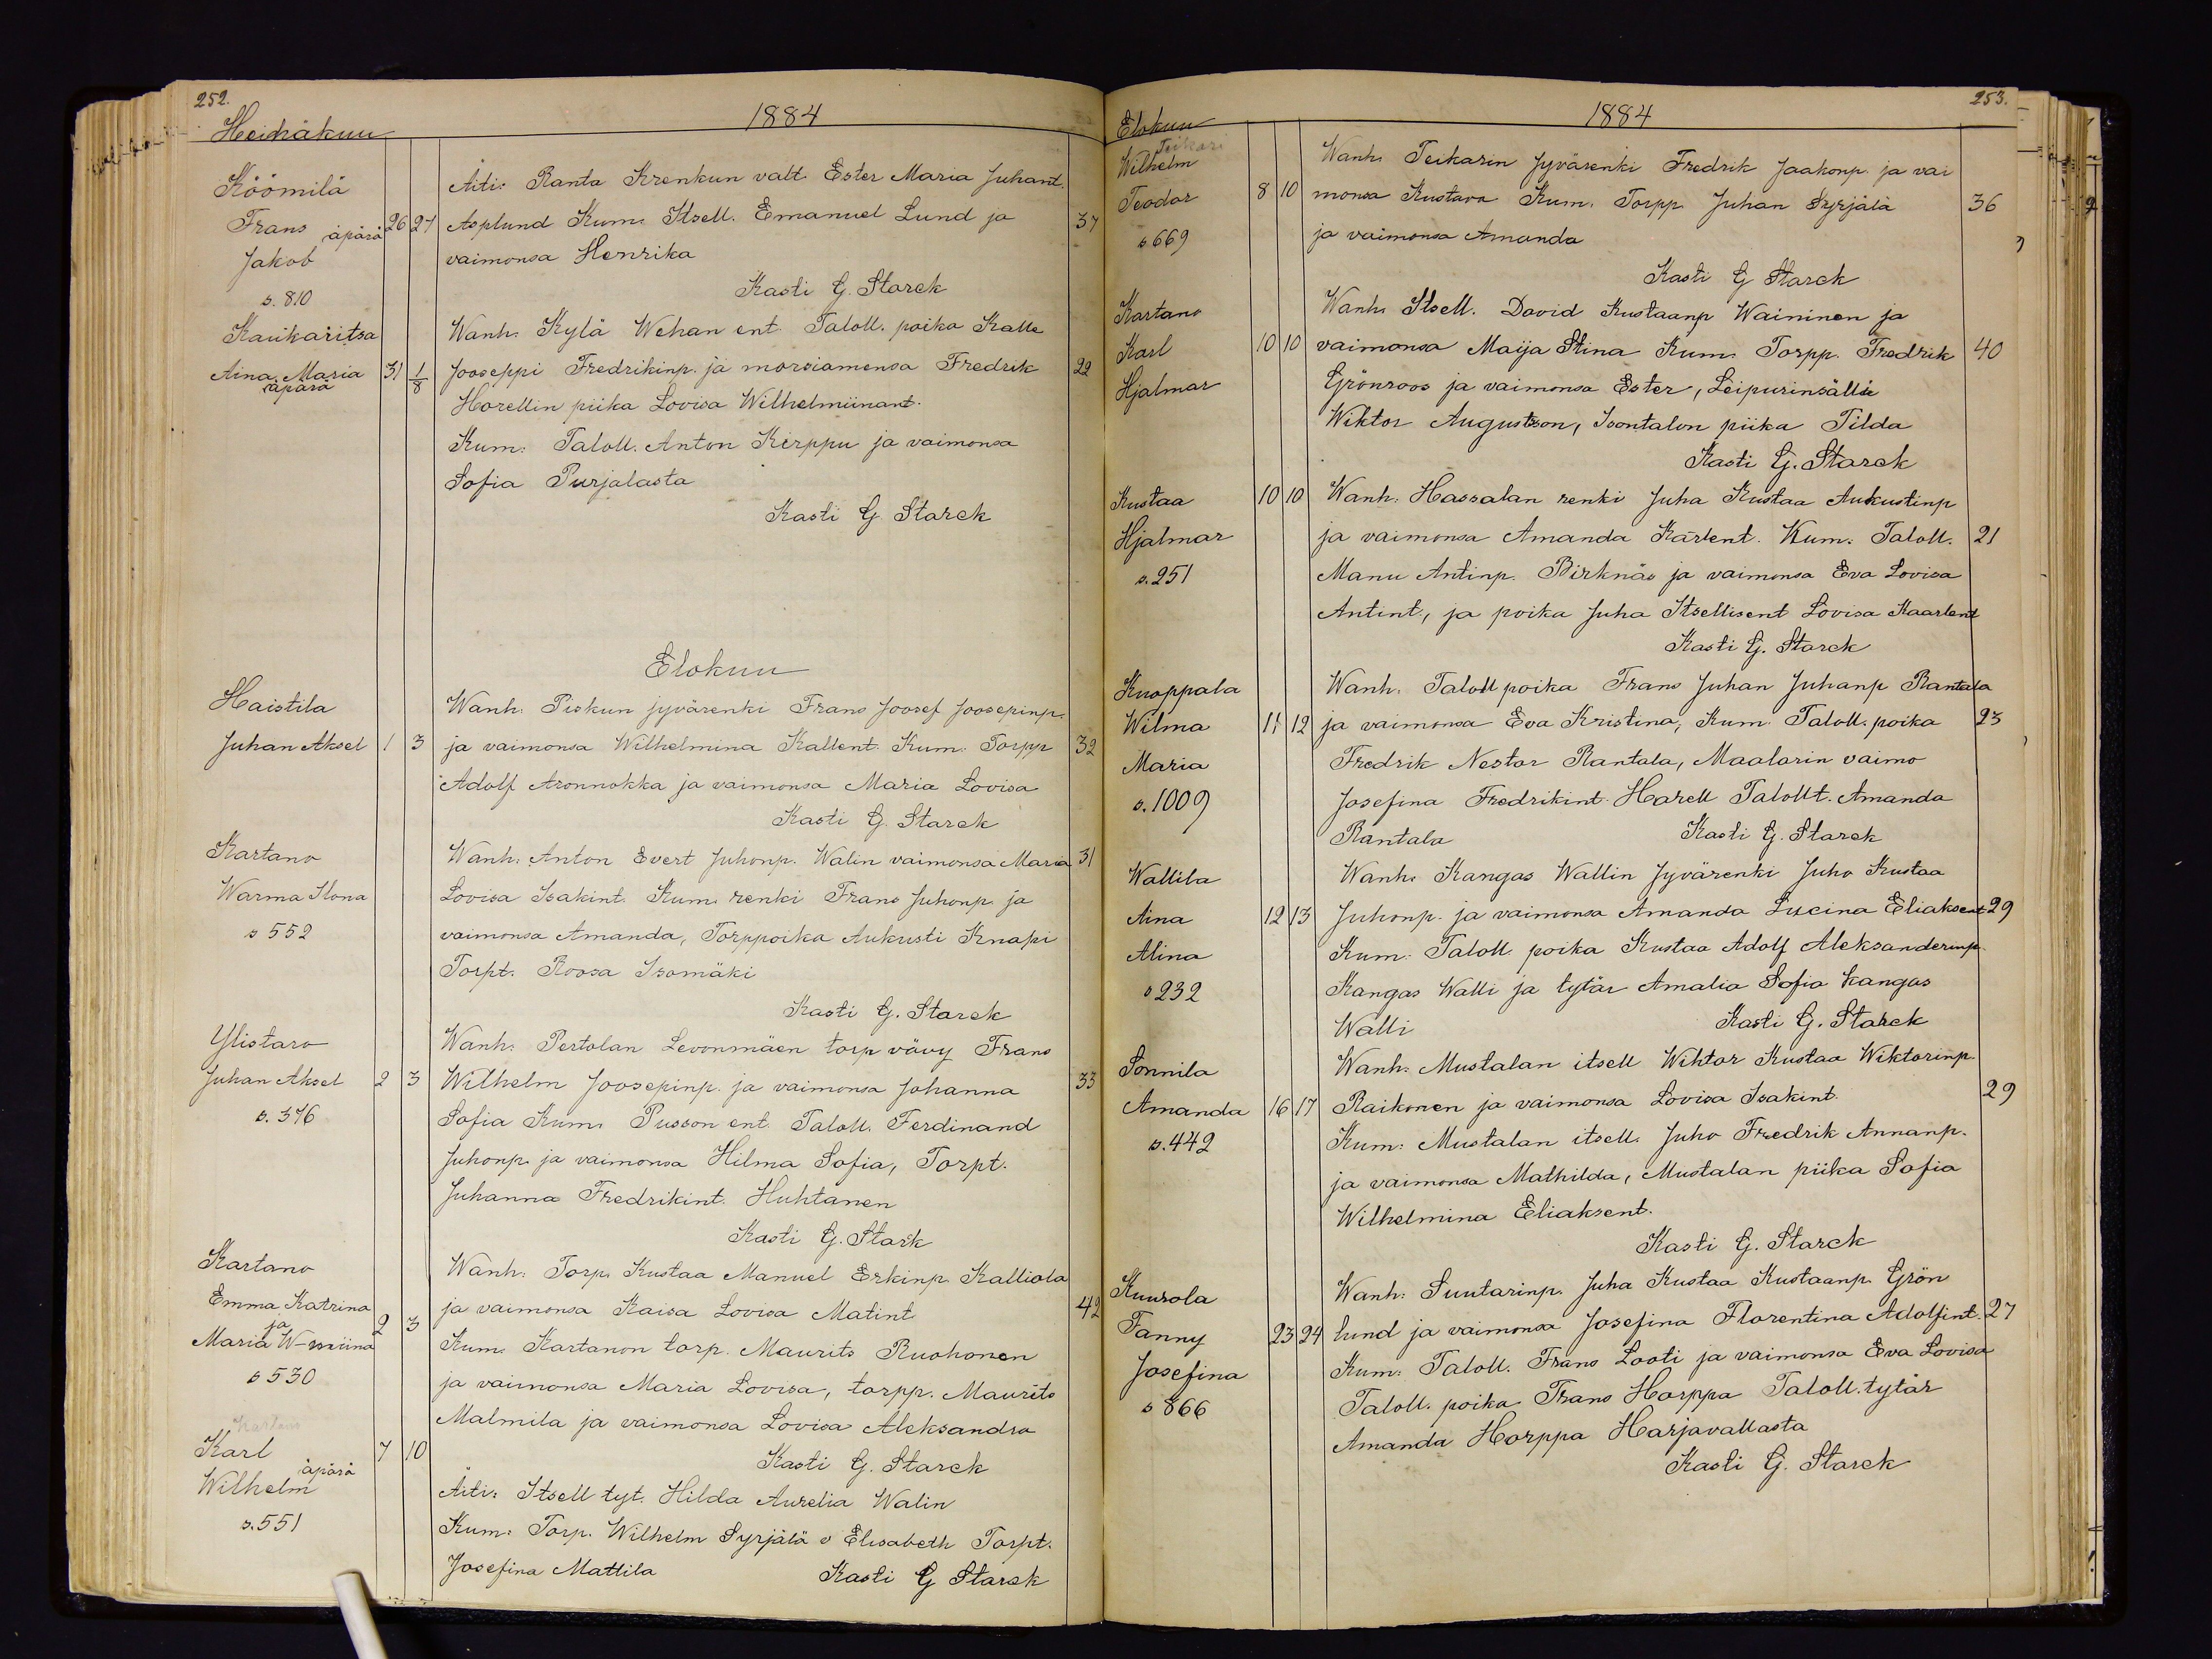 252.
Heinäkuu
1884
Köömilä
Frans äpärä 26 27
Jakob
s. 810
Äiti: Ranta Krenkun valt. Ester Maria Juhant.
Asplund Kum: Itsell. Emanuel Lund ja 37
vaimonsa Henrika
Kasti G. Starck
Kaukaritsa
Aina Maria 31 1/8
äpärä
Wanh: Kylä Wehan ent. Taloll. poika Kalle
Jooseppi Fredrikinp. ja morsiamensa Fredrik 22
Horellin piika Lovisa Wilhelmiinant.
Kum: Taloll. Anton Kirppu ja vaimonsa
Sofia Purjalasta
Kasti G. Starck
Elokuu
Haistila
Juhan Aksel 1 3
Wanh: Piskun jyvärenki Frans Joosef Joosepinp.
ja vaimonsa Wilhelmina Kallent. Kum: Torpp 32
Adolf Aronnokka ja vaimonsa Maria Lovisa
Kasti G. Starck
Kartano
Warma Ilona
s 552
Wanh: Anton Evert Juhonp. Walin vaimonsa Maria 31
Lovisa Isakint. Kum: renki Frans Juhonp. ja
vaimonsa Amanda, Torppoika Aukusti Knapi
Torpt. Roosa Isomäki
Kasti G. Starck
Ylistaro
Juhan Aksel 2 3
s. 376
Wanh: Pertolan Levonmäen torp vävy Frans
Wilhelm Joosepinp. ja vaimonsa Johanna 33
Sofia Kum: Pusson ent. Taloll. Ferdinand
Juhonp. ja vaimonsa Hilma Sofia, Torpt.
Juhanna Fredrikint. Huhtanen
Kasti G. Starck
Kartano
Emma Katrina
ja 2 3
Maria W-miina
s 530
Wanh: Torp. Kustaa Manuel Erkinp. Kalliola
ja vaimonsa Kaisa Lovisa Matint 42
Kum: Kartanon torp. Maurits Ruohonen
ja vaimonsa Maria Lovisa, torpp. Maurits
Malmila ja vaimonsa Lovisa Aleksandra
Kasti G. Starck
Kartano
Karl 7 10
äpärä
Wilhelm
s. 551
Äiti: Itsell tyt. Hilda Aurelia Walin
Kum: Torp. Wilhelm Syrjälä v Elisabeth Torpt.
Josefina Mattila
Kasti G Starck
253.
Elokuu
1884
Teikari
Wilhelm
Teodor 8 10
s 669
Wanh: Teikarin Jyvärenki Fredrik Jaakonp. ja vai
monsa Kustava Kum. Torpp. Juhan Syrjälä 36
ja vaimonsa Amanda
Kasti G Starck
Kartano
Karl 10 10
Hjalmar
Wanh: Itsell. David Kustaanp Waininen ja
vaimonsa Maija Stina Kum: Torpp. Fredrik 40
Grönroos ja vaimonsa Ester, Leipurinsälli
Wiktor Augustson, Isontalon piika Tilda
Kasti G. Starck
Kustaa 10 10
Hjalmar
s. 251
Wanh: Hassalan renki Juha Kustaa Aukustinp
ja vaimonsa Amanda Karlent. Kum: Taloll. 21
Manu Antinp. Birknäs ja vaimonsa Eva Lovisa
Antint., ja poika Juha Itsellisent Lovisa Kaarlent
Kasti G. Starck
Knoppala
Wilma 11 12
Maria
s. 1009
Wanh: Taloll poika Frans Juhan Juhanp Rantala
ja vaimonsa Eva Kristina, Kum: Taloll. poika 23
Fredrik Nestor Rantala, Maalarin vaimo
Josefina Fredrikint. Harell Talollt. Amanda
Rantala
Kasti G. Starck
Wallila
Aina 12 13
Alina
s 232
Wanh: Kangas Wallin Jyvärenki Juho Kustaa
Juhonp. ja vaimonsa Amanda Lucina Eliaksent 29
Kum: Taloll. poika Kustaa Adolf Aleksanderinp.
Kangas Walli ja tytär Amalia Sofia Kangas
Walli
Kasti G. Starck
Sonnila
Amanda 16 17
s. 442
Wanh: Mustalan itsell Wiktor Kustaa Wiktorinp
Raikonen ja vaimonsa Lovisa Isakint. 29
Kum: Mustalan itsell. Juho Fredrik Annanp.
ja vaimonsa Mathilda, Mustalan piika Sofia
Wilhelmina Eliaksent.
Kasti G. Starck
Kuurola
Fanny 23 24
Josefina
s 866
Wanh: Suutarinp. Juha Kustaa Kustaanp. Grön
lund ja vaimonsa Josefina Florentina Adolfint. 27
Kum: Taloll. Frans Looti ja vaimonsa Eva Lovisa
Taloll. poika Frans Horppa Taloll. tytär
Amanda Horppa Harjavallasta
Kasti G. Starck